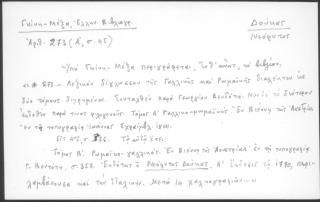 Γκίνη-Μέξα, Ἑλλην. Βιβλιογρ.
Δούκας
Νεόφυτος
Ἀρθ. 273 (Α', σ. 45)
Ὑπό Γκίνη-Μέξα περιγράφεται, τὸ Βιβλίον,
273 — Λεξικόν δίγλωσσον τῆς Γαλλικῆς καί Ῥωμαϊκῆς διαλέκτου εἰς
δύο τόμους διῃρημένον. Συνταχθέν παρά Γεωργίου Βενδότη. Νῦν τό δεύτερον
ἐκδοθέν παρά τινος φιλογενοῦς. Τόμος Α' Γαλλικο-ρωμαϊκός. Ἐν Βιέννῃ τῆς Ἀουστρίας
ἐν τῇ τυπογραφίᾳ
Εἰς 4ον, σ. Τό αὐτό ἔτει:
Τόμος Β'. Ῥωμαικο-γαλλικός. Ἐν Βιέννῃ τῆς Ἀουστρίας ἐν τῇ τυπογραφίᾳ
Γ. Βενδότη. σ. 358. Ἐκδότης ὁ Νεόφυτος Δούκας. Α' ἔκδοσις τῷ 1790, περι-
λαμβάνουσα καί τήν Ἰταλικήν. Μετά